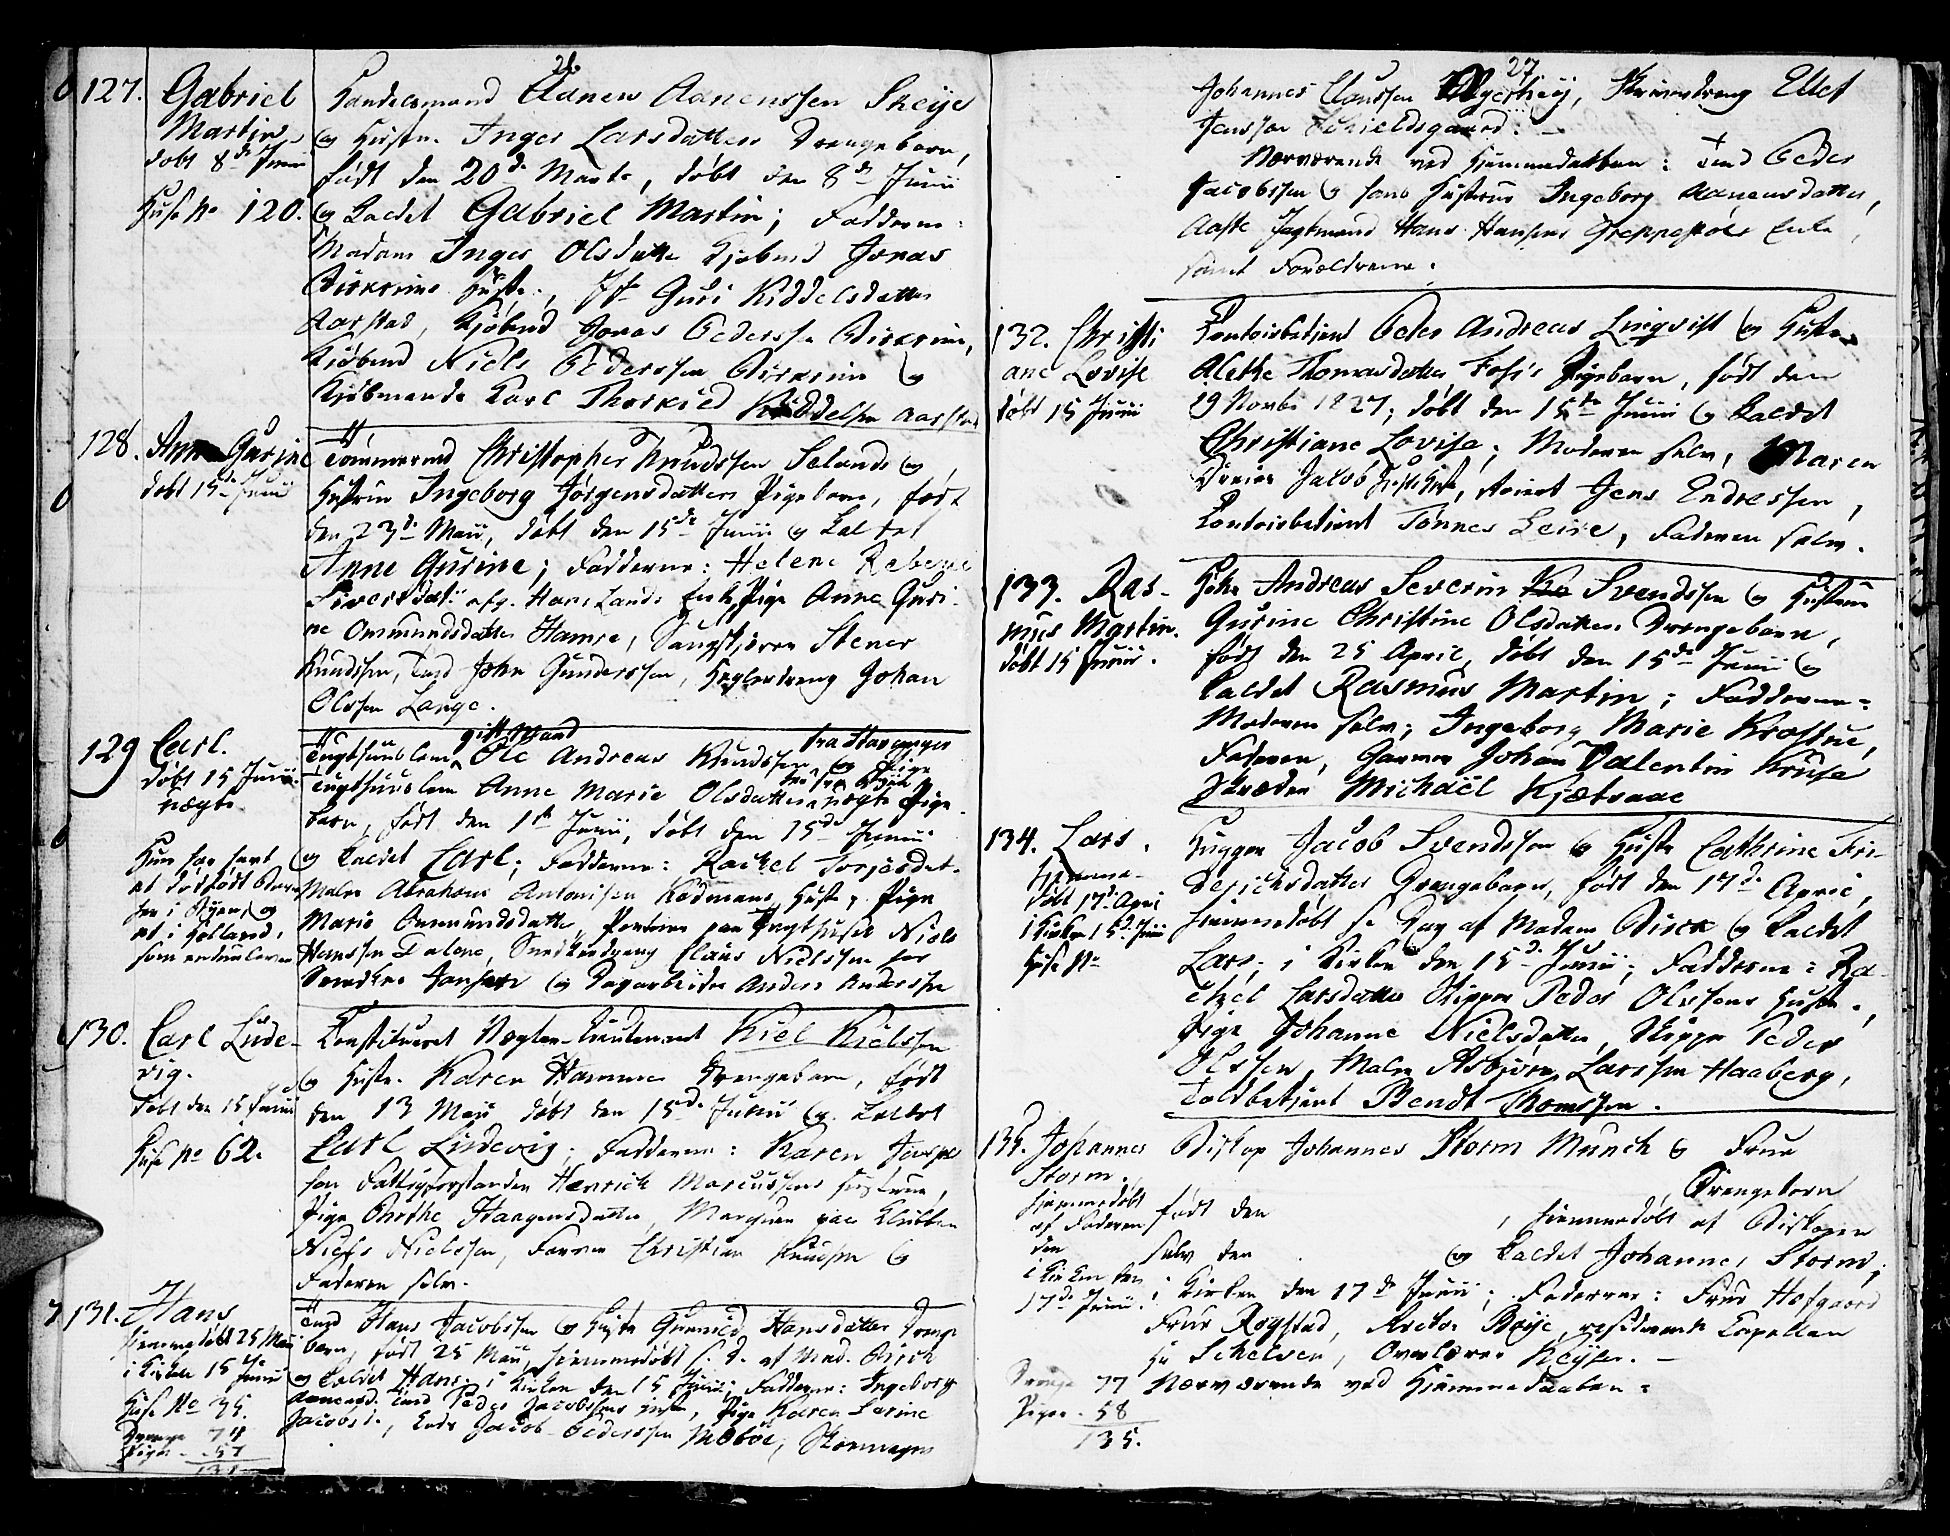 26.
127. Gabriel
Martin
døbt 8de Junii
Huse No 120.
Handelsmand Aanen Aanenssen Skeije
og Hustr. Inger Larsdatters Drengebarn,
født den 20de Marts, døbt den 8de Junii
og kaldet Gabriel Martin; Faddere:
Madam Inger Olsdatter Kjøbmd Jonas
Birkrims Hustr., Guri Kiddelsdatter
Aarstad, Kjøbmd Jonas Pedersen Birkrim,
Kjøbmd Niels Pederssen Birkrim og
Kjøbmands Karl Thorkild Kiddelsen Aarstad
128. Anne Gurine
døbt 15de Junii
Tømmermd Christopher Knudssen Selands og
Hustrue Ingeborg Jørgensdatters Pigebarn, født
den 23de Maii, døbt den 15de Junii og kaldet
Anne Gurine; Fadderne: Helene Rebecce
Sivertsdatr. Hans Lands Enke, Pige Anne Guri-
ne Ommundsdatter Hamre, Stener
Knudssen, Tmd John Gunderssen, Johan
Olssen Lange.
129 Carl.
døbt 15 Junii.
uægte
Hun har havt
et dødfødt Barn
før i Byen, og
et i Holland,
som endnu lever
Tugthuuslem gift Mand Ole Andreas Knudssen fra Stavanger og Pige
Tugthuuslem Anne Marie Olsdatters uægte Pige-
barn, født den 1ste Junii, døbt den 15de Junii
og kaldet Carl; Fadderne: Rachel Torjesdat.
Matr. Abraham Antonisen Rødmans Hustr., Pige
Marie Ommundsdatter, Portner paa Tugthuset Niels
Hanssen Dalene, Claus Nielssen hos
Jansen og Dagarbeider Anders Anderssen
130. Carl Lude-
vig.
døbt den 15 Junii
Huse No 62.
Constitueret Vægter-Lieutenant Kiel Kielssen
og Hustr. Karen Hammers Drengebarn, født
den 13 Maii døbt den 15de Junii og kaldet
Carl Ludevig; Fadderne: Karen
Fattigforstander Henrich Marcussens Hustrue,
Pige Haagensdatter, Marqueur paa Klubben
Niels Nielssen, Farver Christian Knudsen og
Faderen selv.
131. Hans
Hjemmedøbt 25 Maii
i Kirken 15 Junii
Huse No 35.
Drenge 74
Piger 57
131
Tmd Hans Jacobssen og Hustr. Gunnild Hansdatters Drenge-
barn, født 25 Maii, hjemmedøbt s. D. af Mad. Birch
og kaldet Hans; i Kirken den 15 Junii; Fadderne: Ingeborg
Aanensd. Tmd Peder Jacobssens Hustr., Pige Karen Serine
Jacobsd., Jacob Pederssen Møboe, Skomager
27
Johannes Claussen, Elert
Jenssen Schieldsgaard.
Nærværende ved Hjemmedaaben: Tmd Peder
Jacobssen og hans Hustrue Ingeborg Aanensdatter,
Aaste Jagtmand Hans Hansens Enke,
samt Forældrene.
132. Christi-
ane Lovise
døbt 15 Junii
Contoirbetjent Peder Andreas Linqvist og Hustr.
Alethe Thomasdatter Foss's Pigebarn, født den
29 Novbr 1827, døbt den 15de Junii og kaldet
Christiane Lovise; Moderen selv, Maren
Dreier Jacob, Jens Endressen,
Contoirbetjent Tønnes Leire, Faderen selv.
133. Ras-
mus Martin.
døbt 15 Junii.
Andreas Severin Svendssen og Hustrue
Gurine Christine Olsdatters Drengebarn,
født den 25 April, døbt den 15de Junii og
kaldet Rasmus Martin; Fadderne:
Moderen selv, Ingeborg Marie Krossue,
Faderen, Garver Johan Valentin Kruse
Skræder Michaël Kjetsaae
134. Lars.
Hjemme-
døbt 17d. April
i Kirken 15d. Junii
Huse No
Hugger Jacob Svendssen og Hustr. Cathrine Fri-
derichsdatters Drengebarn, født den 17de April,
hjemmedøbt s. Dag af Madam Birch og kaldet
Lars; i Kirken den 15de Junii; Fadderne: Ra-
chel Larsdatter Skipper Peder Olssens Hustr.,
Pige Johanne Nielsdatter, Skipper Peder
Olssen, Matr. Asbjørn Larssen Haaberg,
Toldbetjent Bendt Thomssen.
135. Johannes
Storm.
hjemmedøbt
af Faderen
den
i Kirken den
17de Junii.
Biskop Johannes Storm Munch og Frue
Drengebarn
født den , hjemmedøbt af Biskopen
selv den og kaldet Johannes Storm;
i Kirken den 17de Junii; Fadderne: Frue Hofgaard
Frue Rogstad, Rector Boye, residerende Capellan
Hr Schelven, Overlærer Keyser. —
Nærværende ved Hjemmedaaben:
Drenge 77
Piger 58
135.